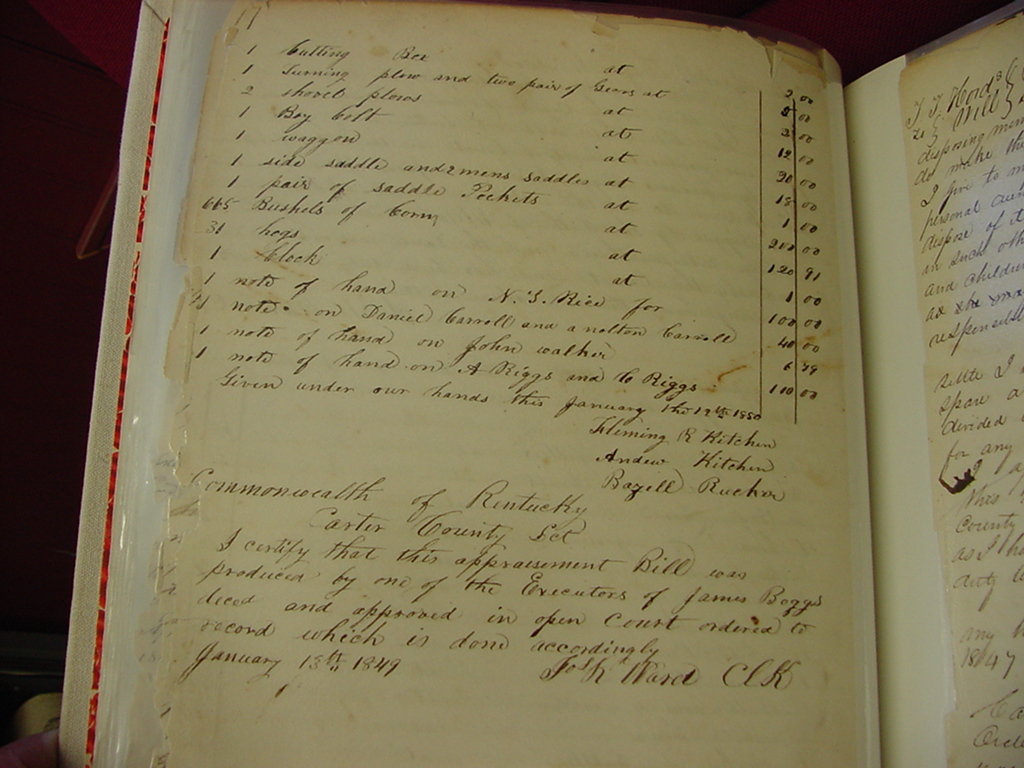 17
1 Cutting Box at 2 00
1 Turning plow and two pair of Gears at 8 00
2 shovel plows at 3 00
1 Bay Colt at 12 00
1 waggon at 30 00
1 side saddle and 2 mens saddles at 18 00
1 pair of saddle Pockets at 1 00
665 Bushels of Corn at 200 00
31 hogs at 120 91
1 Clock at 1 00
1 note of hand on N. T. Rice for 100 00
note on Daniel Carroll and a nolton Carroll 40 00
1 note of hand on John walker 6 79
1 note of hand on A Riggs and C Riggs 110 00
Given under our hands this January the 12th 1850
Fleming R Kitchen
Andew Kitchen
Bazell Rucker
Commonwealth of Kentucky
Carter County Sct
I certify that this appraisement Bill was
produced by one of the Executors of James Boggs
decd and approved in open Court ordered to
record which is done accordingly
January 15th 1849
Jos R Ward ClK
J. J. Hord's
Will
disposing
do make this
I give to
personal
dispose of it
in such
and children
as she
settle I
spare a
devided
for any
this
County
as I
duty
any
1847